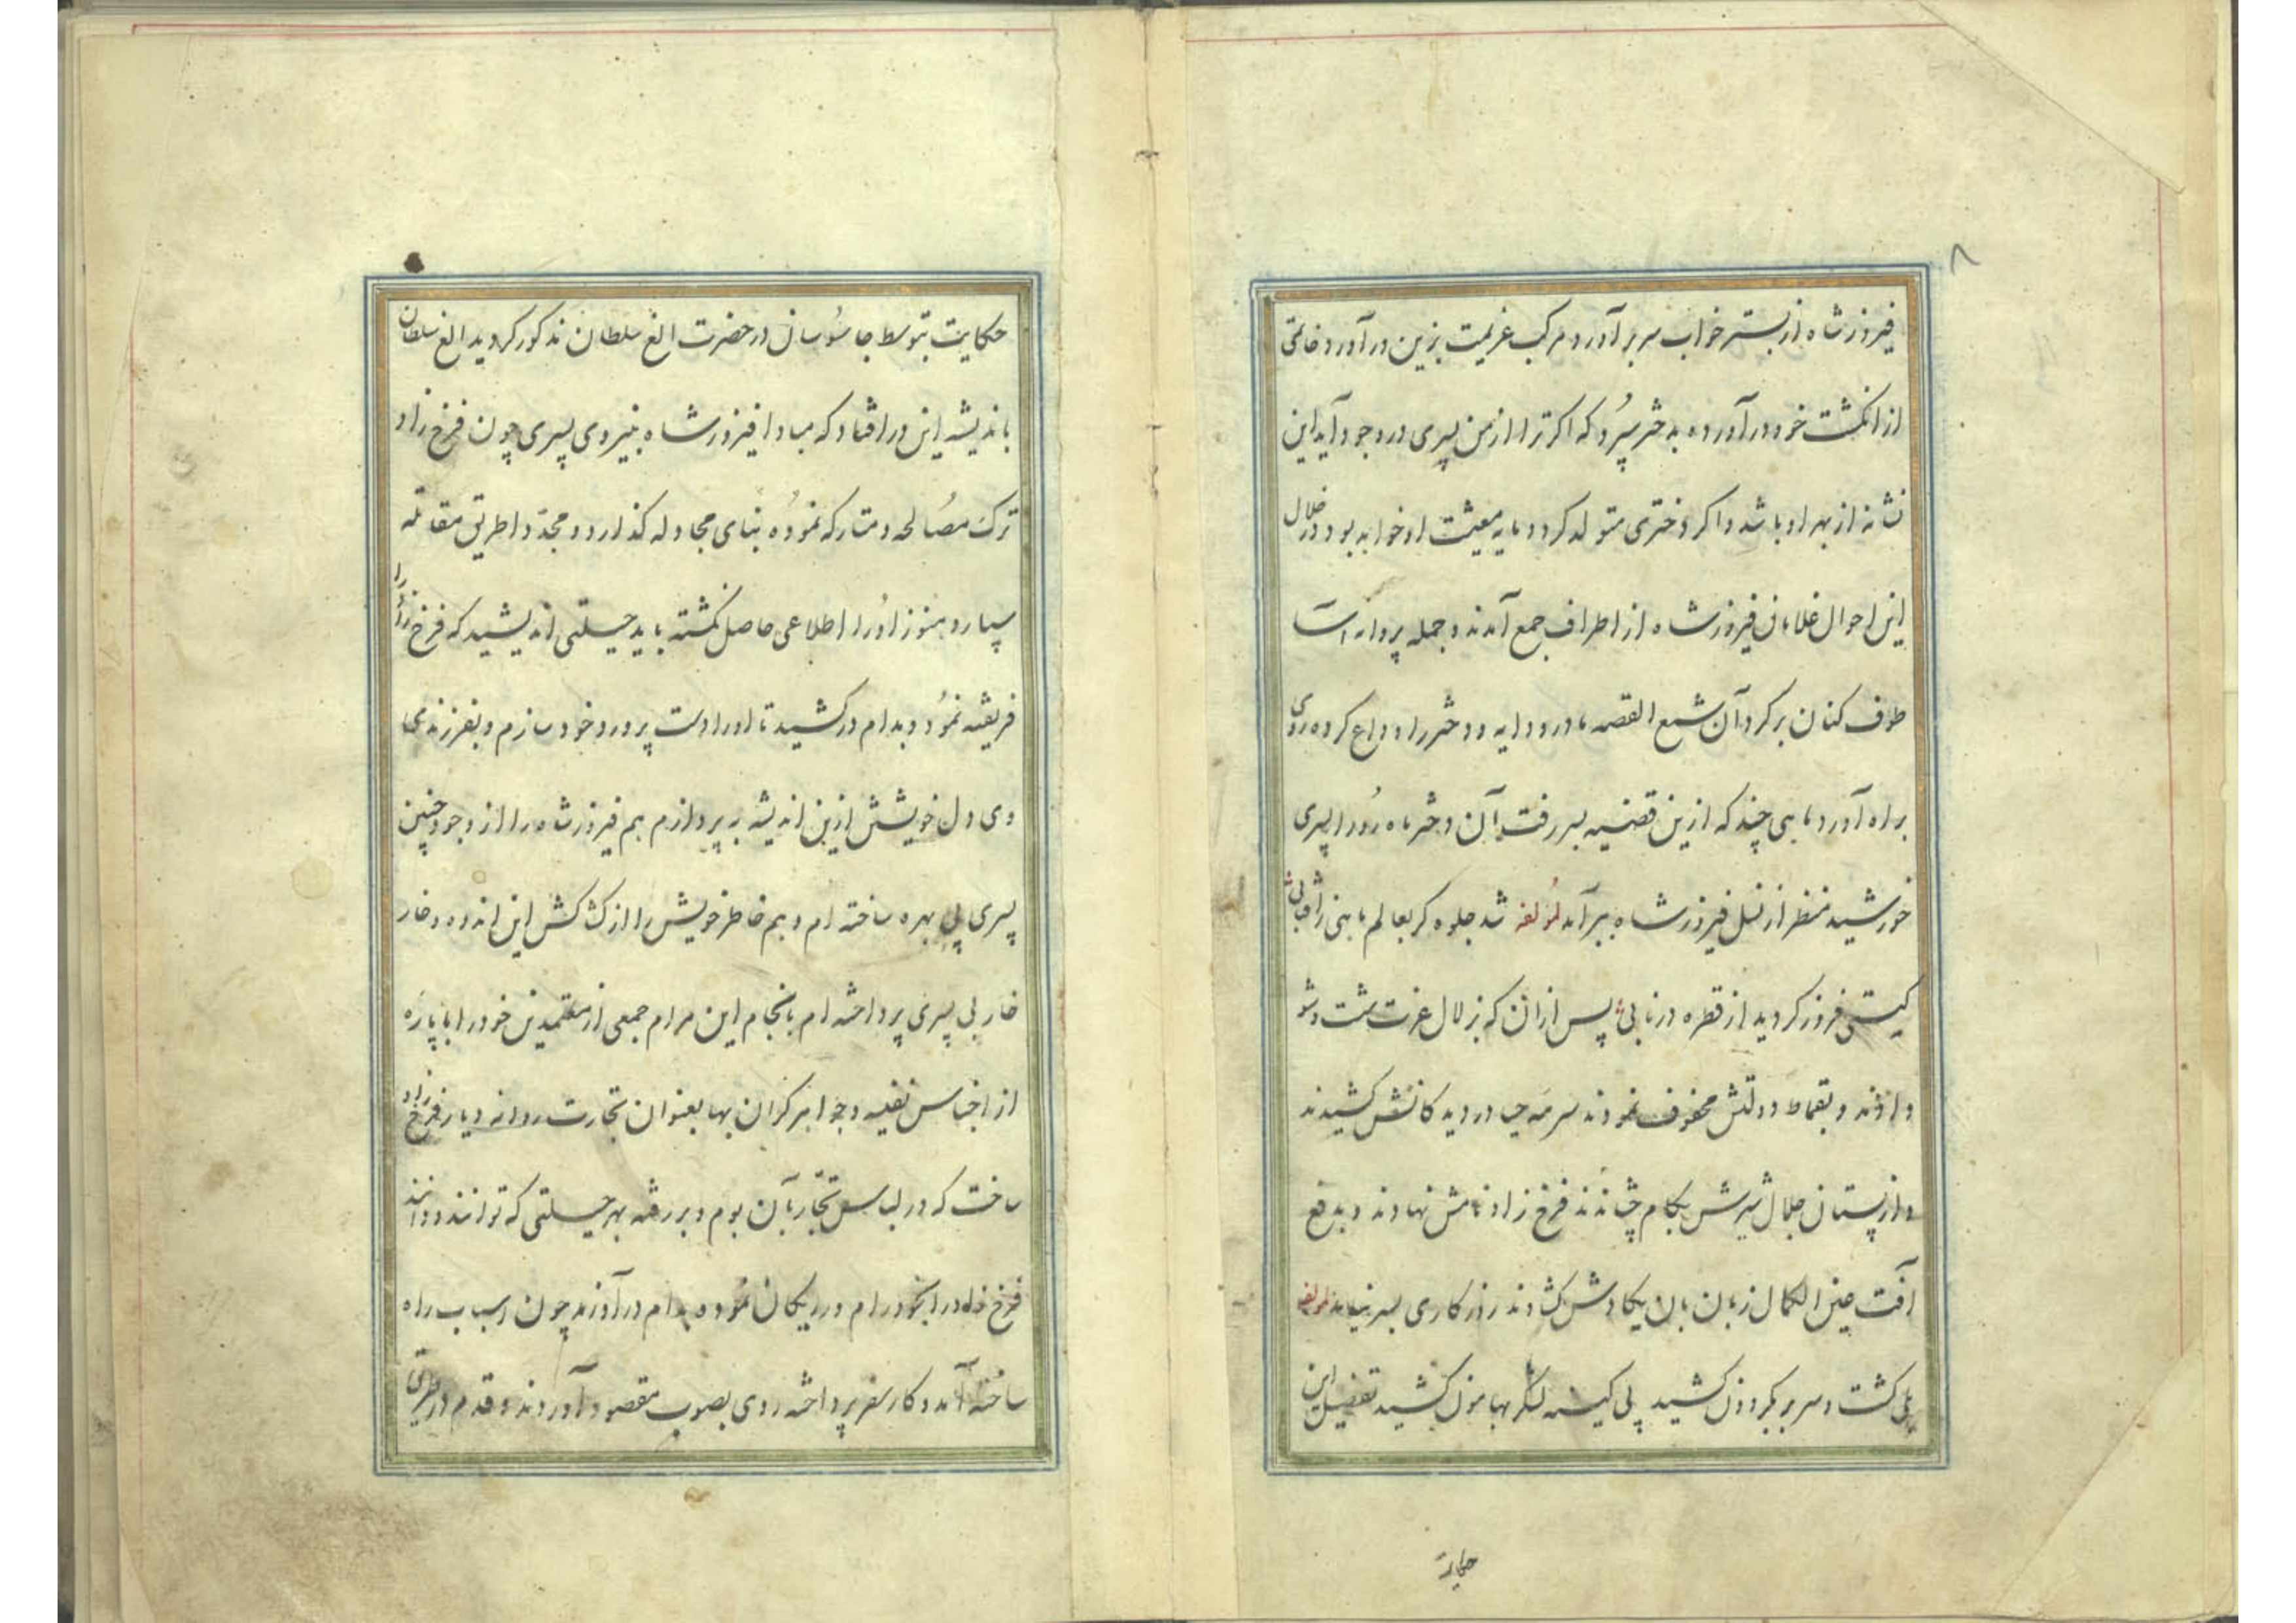 ۸
فیروز شاه از بستر خواب سر بر آورد و مرکب عزیمت بزین در آورد و خاتمی
از انکشت خود در آورده به دختر سپرد که اکر ترا از من پسری در وجود آید این
نشانه از بهر او باشد و اکر دختری متولد کردد مایه معیشت او خواهد بود در خلال
این احوال غلامان فیروز شاه از اطراف جمع آمدند و جمله پروانه آسا
طوف کنان بر کرد آن شمع القصه مادر و دایه و دختر را وداع کرده روی
براه آورد ماهی چند که ازین قضیه بسر رفت آن دختر ماه رو را پسری
خورشید منظر از نسل فیروز شاه ببر آمد لمؤلفه شد جلوه کر بعالم ماهی ز آفتابی
کیتی فروز کردید از قطره در نابی پس از آن که بزلال عزت شست و شو
دادند و بقماط دولتش محفوف نمودند سرمه حیا در دیدکانش کشیدند
و از پستان جلال شیرش بکام چشاندند فرخ زاد نامش نهادند و بدفع
آفت عین الکمال زبان بان یکادش کشادند روزکاری بسر نیامد لمؤلفه
یلی کشت و سر بر بکردون کشید پی کینه لشکر بهامون کشید تفصیل این
حکایة
حکایت بتوسط جاسوسان در حضرت الغ سلطان مذکور کردید الغ سلطان
باندیشه این در افتاد که مبادا فیروز شاه بنیروی پسری چون فرخ زاد
ترک مصالحه و متارکه نموده بنای مجادله کذارد و مجددا طریق مقاتله
سپارد هنوز او را اطلاعی حاصل نکشته باید حیلتی اندیشید که فرخ زاد را
فریفته نمود و بدام در کشید تا او را دست پرورد خود سازم و بفرزندی
وی دل خویشتن ازین اندیشه بپردازم هم فیروز شاه را از وجود چنین
پسری بی بهره ساخته ام و هم خاطر خویش را از کشاکش این اندوه و خار
خار بی پسری پرداخته ام بانجام این مرام جمعی از معتمدین خود را با پاره
از اجناس نفیسه و جواهر کران بها بعنوان تجارت روانه دیار فرخ زاد
ساخت که در لباس تجار بآن بوم و بر رفته بهر حیلتی که توانند و دانند
فرخ زاد را بخود رام و در یکان نموده بدام در آورند چون اسباب راه
ساخته آمد و کار سفر پرداخته روی بصوب مقصود آوردند و قدم در طریق